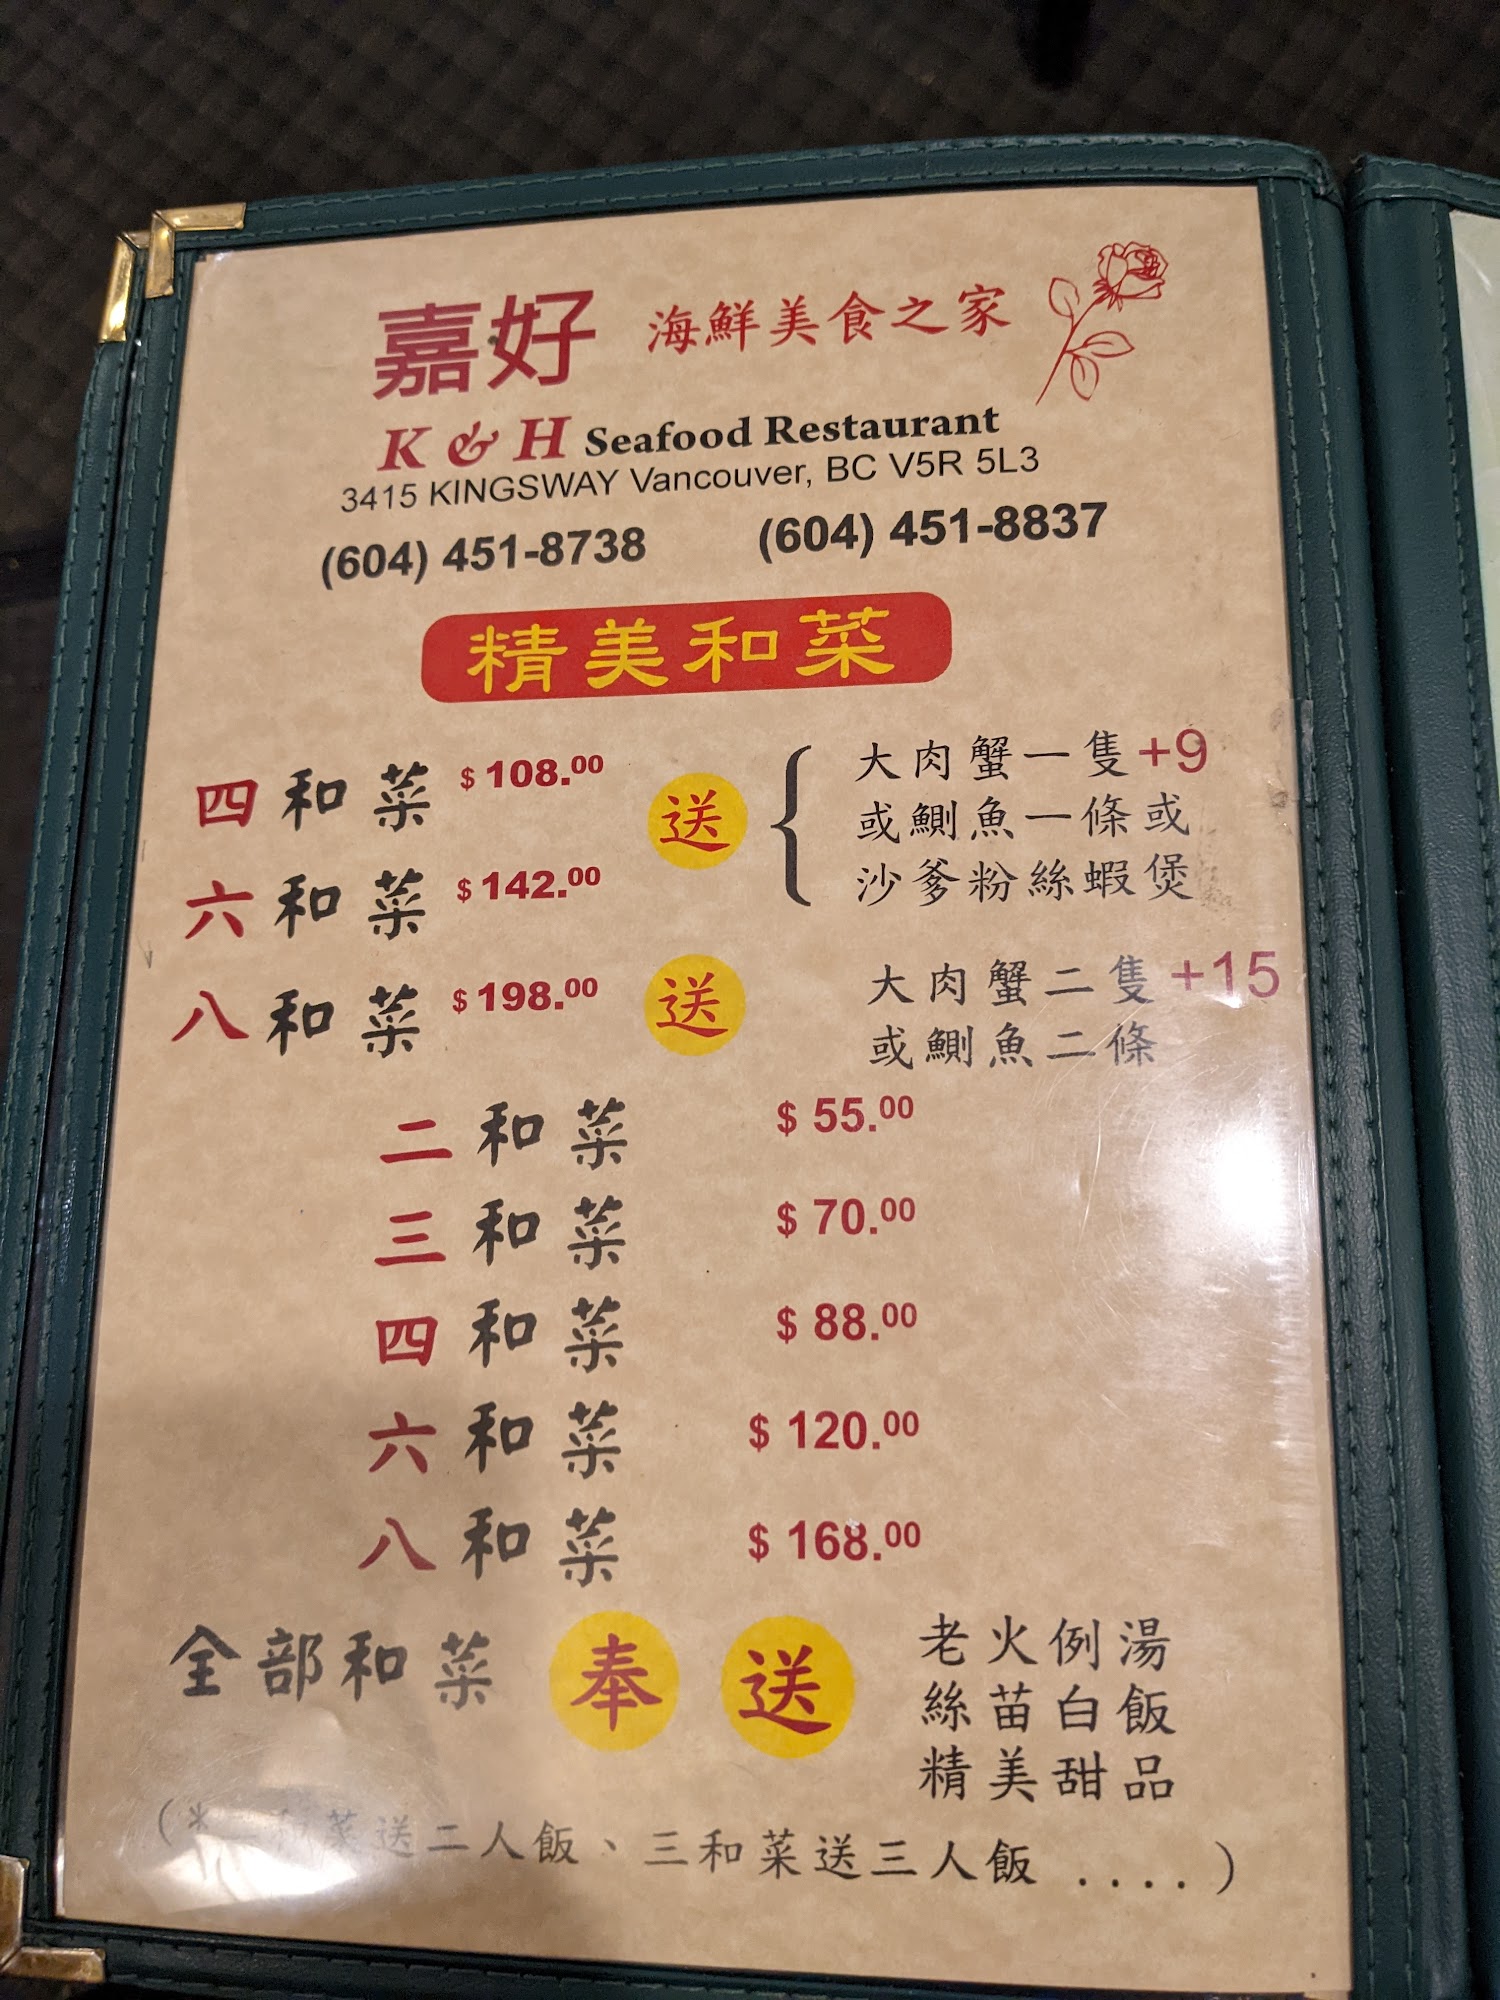 嘉好 海鮮美食之家
K & H Seafood Restaurant
3415 KINGSWAY Vancouver, BC V5R 5L3
(604) 451-8738 (604) 451-8837
精美和菜
四和菜 $ 108.00
六和菜 $ 142.00
送
大肉蟹一隻 +9
或鰂魚一條或
沙爹粉絲蝦煲
八和菜 $ 198.00
送
大肉蟹二隻 +15
或鰂魚二條
二和菜 $ 55.00
三和菜 $ 70.00
四和菜 $ 88.00
六和菜 $ 120.00
八和菜 $ 168.00
全部和菜 奉送
老火例湯
絲苗白飯
精美甜品
(*二和菜送二人飯、三和菜送三人飯 ....)